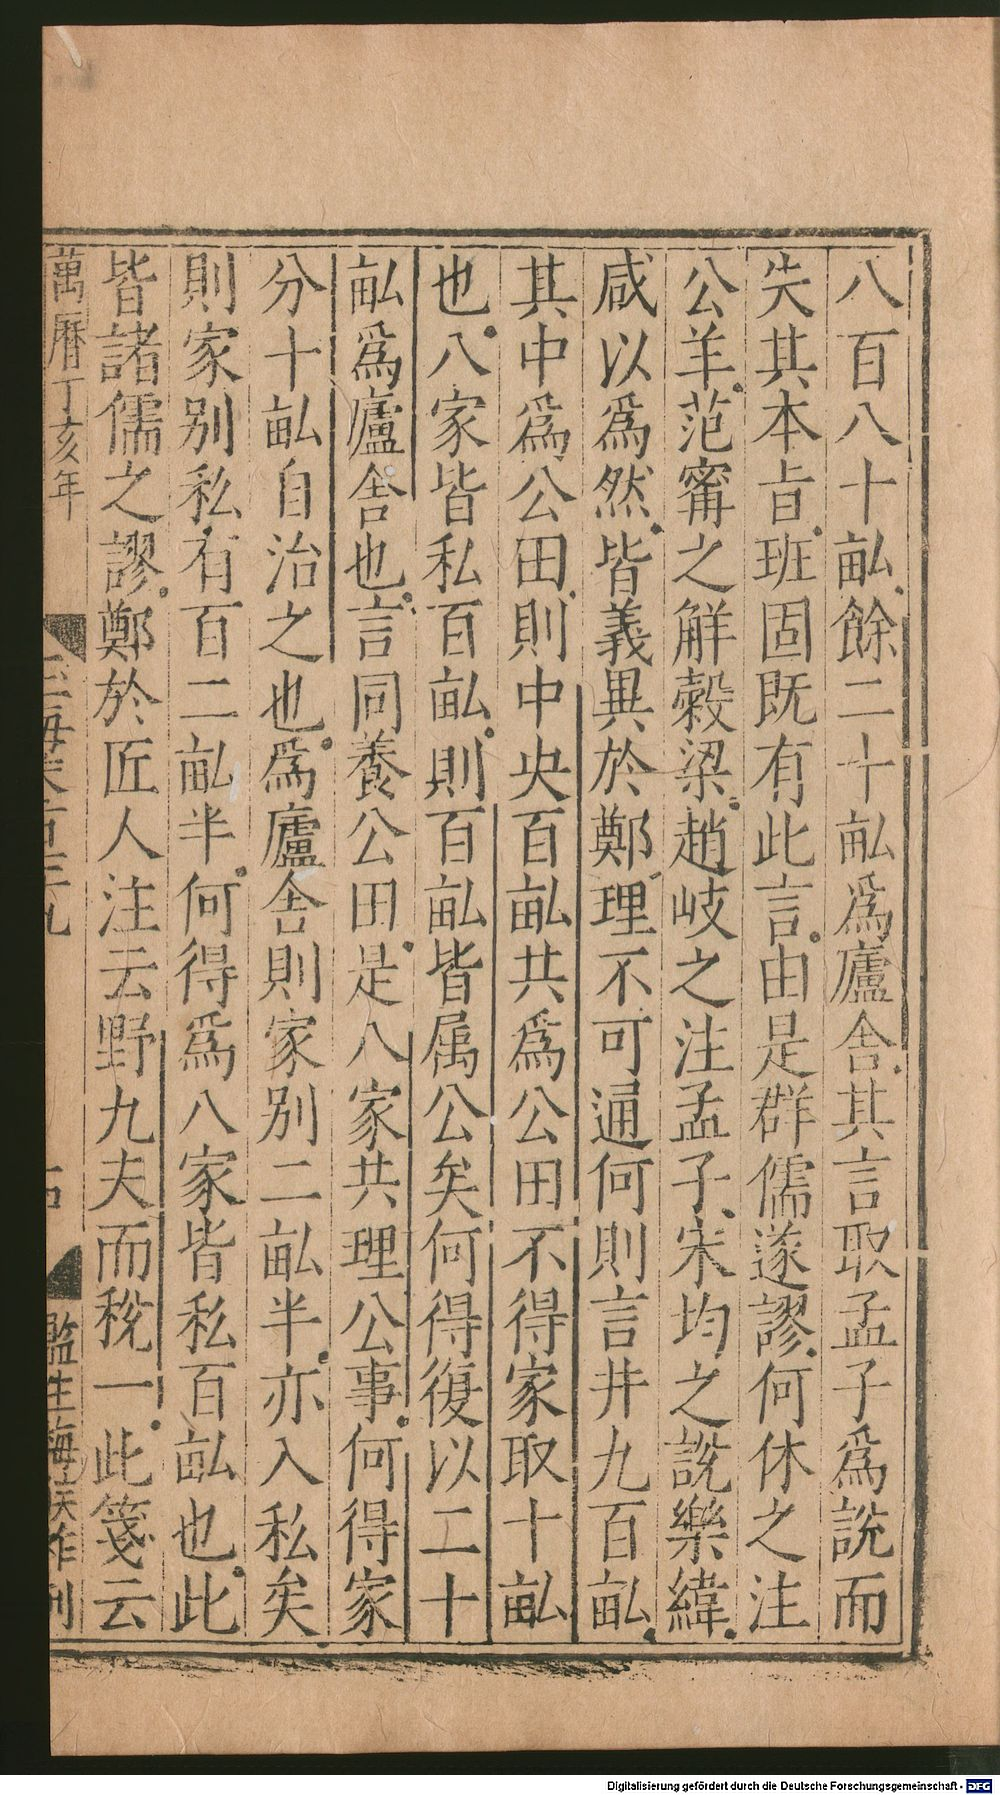 八百八十畝餘二十畝爲廬舍其言取孟子爲説而
失其本旨班固既有此言由是群儒遂謬何休之注
公羊范甯之解榖梁趙岐之注孟子宋均之説樂緯
咸以爲然皆義異於鄭理不可通何則言井九百畝
其中爲公田則中央百畝共爲公田不得家取十畝
也八家皆私百畝則百畝皆属公矣何得復以二十
畝爲廬舍也言同養公田是八家共理公事何得家
分十畝自治之也爲廬舍則家别二畝半亦入私矣
則家别私有百二畝半何得爲八家皆私百畝也此
皆諸儒之謬鄭於匠人注云野九夫而税一此箋云
萬曆丁亥年
監生
刋
Digitalisierung gefördert durch die Deutsche Forschungsgemeinschaft - DFG